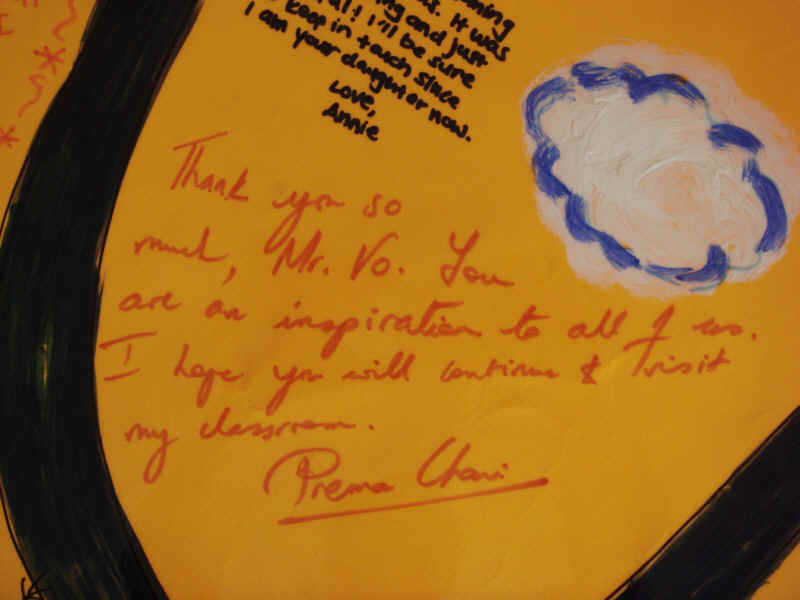 was. It was
and just
I'll be sure
keep in touch since
I am your daughter now.
Love,
Annie
Thank you so
much, Mr. Vo. You
are an inspiration to all of us.
I hope you will continue to visit
my classroom.
Prema Chari